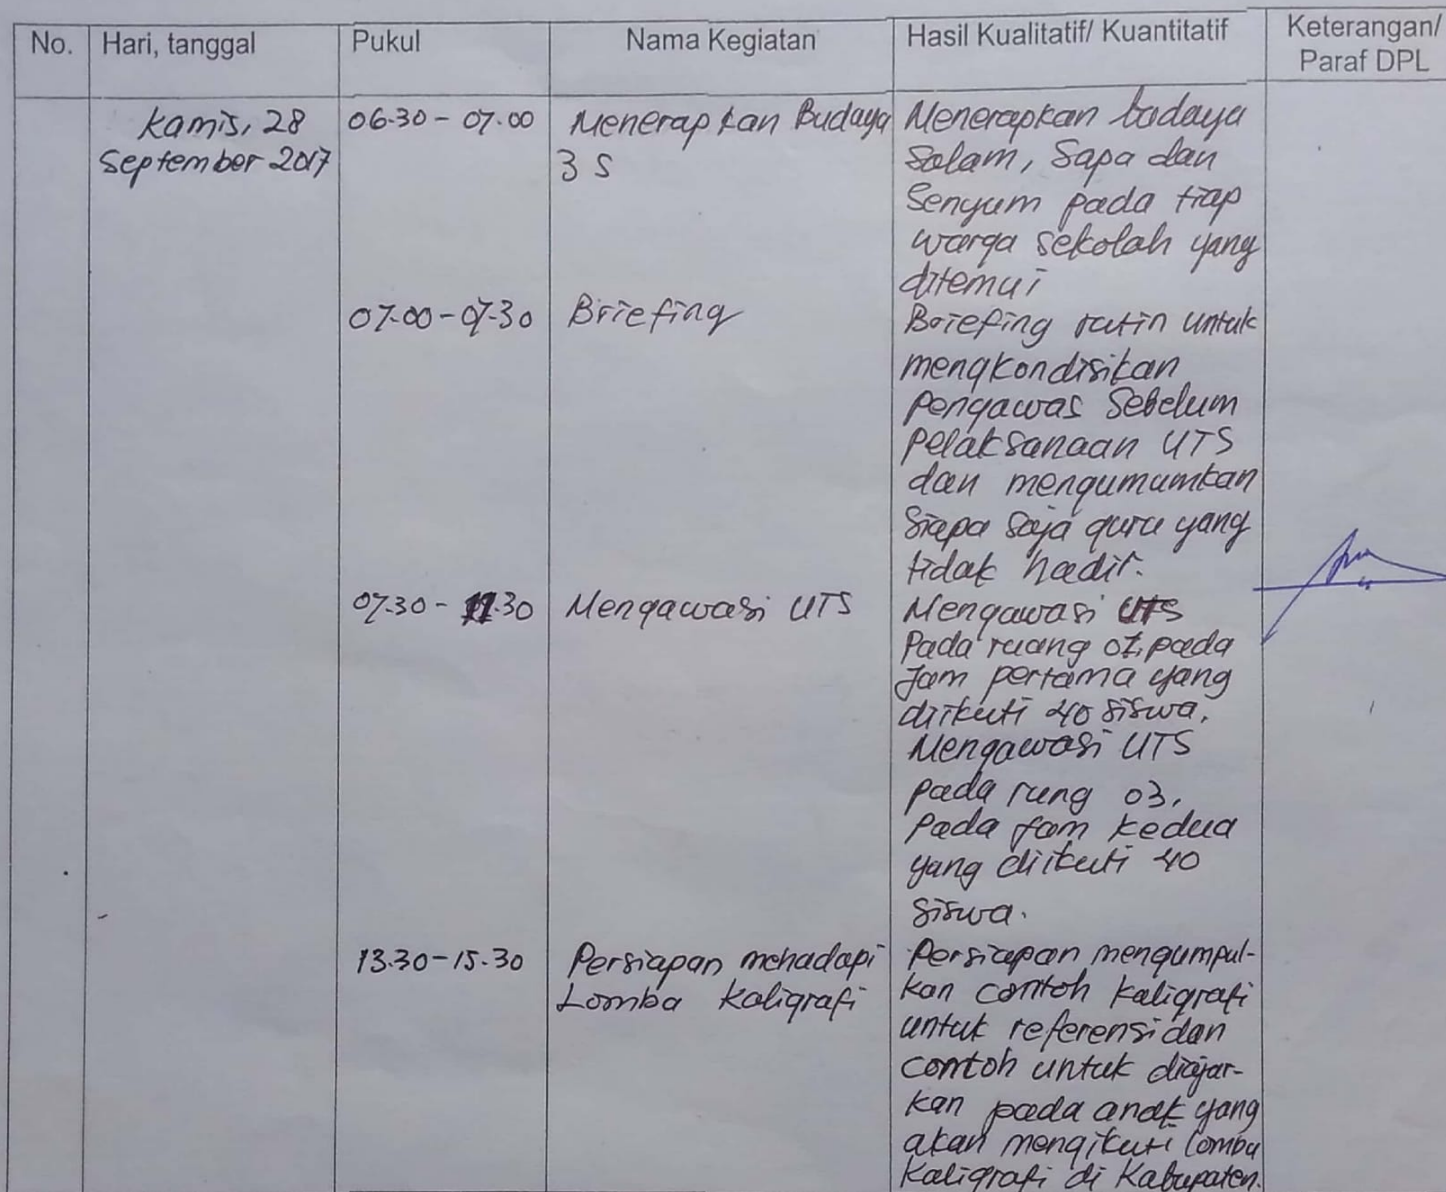 No. Hari, tanggal Pukul Nama Kegiatan Hasil Kualitatif/ Kuantitatif Keterangan/
Paraf DPL
Kamis, 28 06.30 - 07.00 Menerapkan Budaya Menerapkan budaya
September 2017 3 S Salam, Sapa dan
Senyum pada tiap
warga sekolah yang
ditemui
07.00 - 07.30 Briefing Briefing rutin untuk
mengkondisikan
Pengawas Sebelum
Pelaksanaan UTS
dan mengumumkan
Siapa saja guru yang
tidak hadir.
07.30 - 11.30 Mengawasi UTS Mengawasi UTS
Pada ruang 07, pada
Jam pertama yang
diikuti 40 siswa.
Mengawasi UTS
pada rung 03,
Pada jam kedua
yang diikuti 40
siswa.
13.30 - 15.30 Persiapan mehadapi Persiapan mengumpul-
Lomba Kaligrafi kan contoh kaligrafi
untuk referensi dan
contoh untuk diajar-
kan pada anak yang
akan mengikuti lomba
Kaligrafi di Kabupaten.